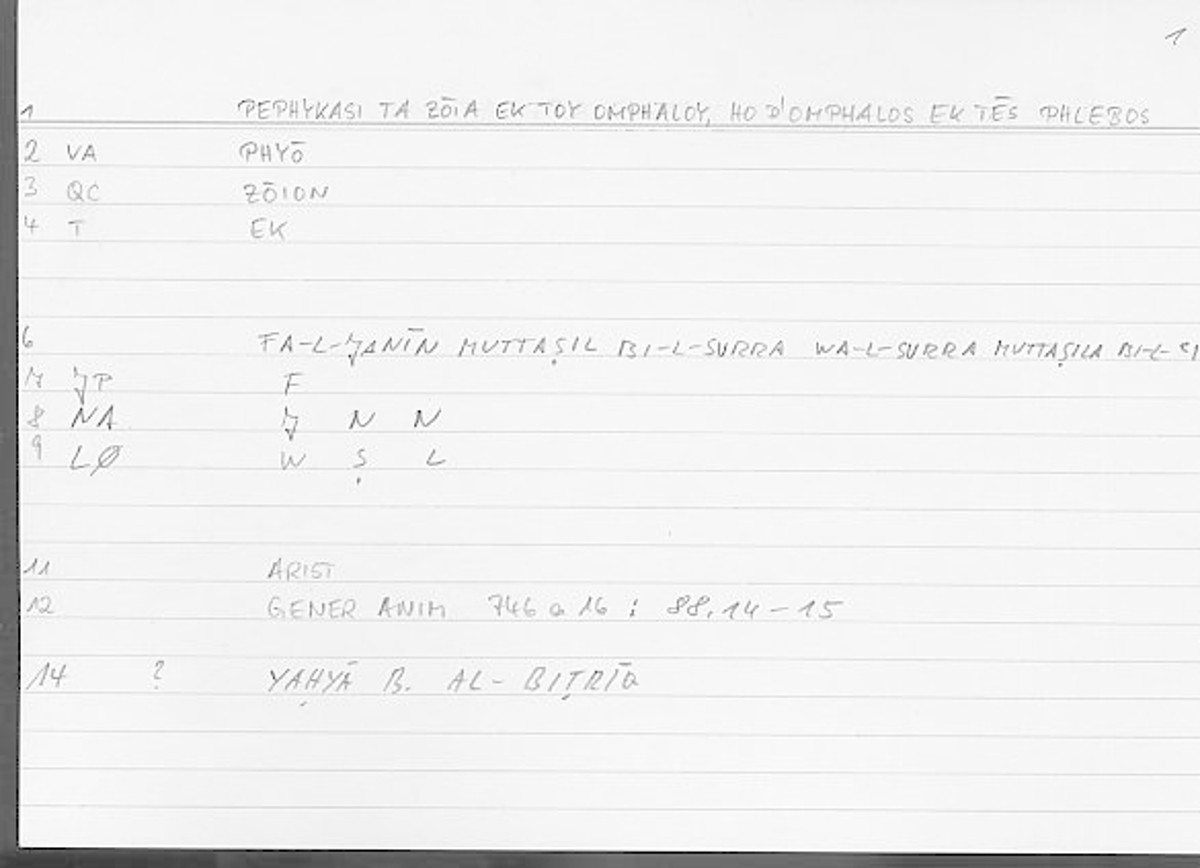 1
1 PEPHYKASI TA ZŌIA EK TOY OMPHALOY, HO D'OMPHALOS EK TĒS PHLEBOS
2 VA PHYŌ
3 QC ZŌION
4 T EK
6 FA-L-ǦANĪN MUTTAṢIL BI-L-SURRA WA-L-SURRA MUTTAṢILA BI-L-ʿI
7 ǦP F
8 NA Ǧ N N
9 LØ W Ṣ L
11 ARIST
12 GENER ANIM 746 a 16 : 88.14-15
14 ? YAḤYĀ B. AL-BIṬRĪQ